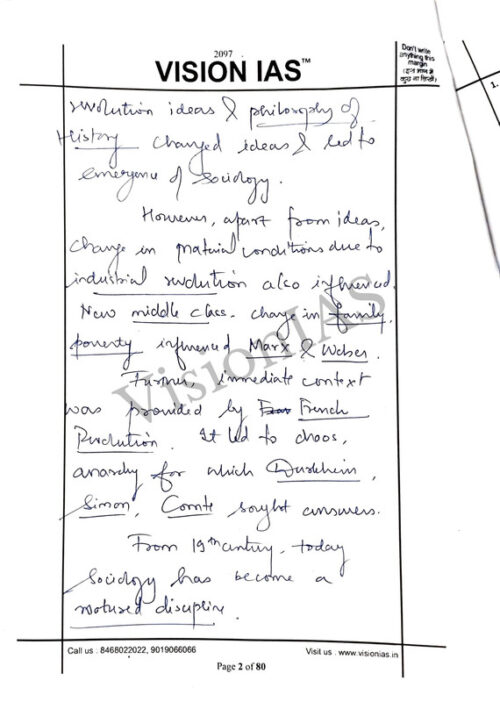 2097
VISION IAS™
Don't write
anything this
margin
(इस भाग में
कुछ ना लिखें)
1.
revolution ideas & philosophy of
History changed ideas & led to
emergence of Sociology.
However, apart from ideas,
change in material conditions due to
industrial revolution also influenced.
New middle class. change in family,
poverty influenced Marx & Weber.
Further, immediate context
was provided by French
Revolution. It led to chaos,
anarchy for which Durkheim,
Simon, Comte sought answers.
From 19th century, today
Sociology has become a
matured discipline.
VisionIAS
Call us : 8468022022, 9019066066
Visit us : www.visionias.in
Page 2 of 80